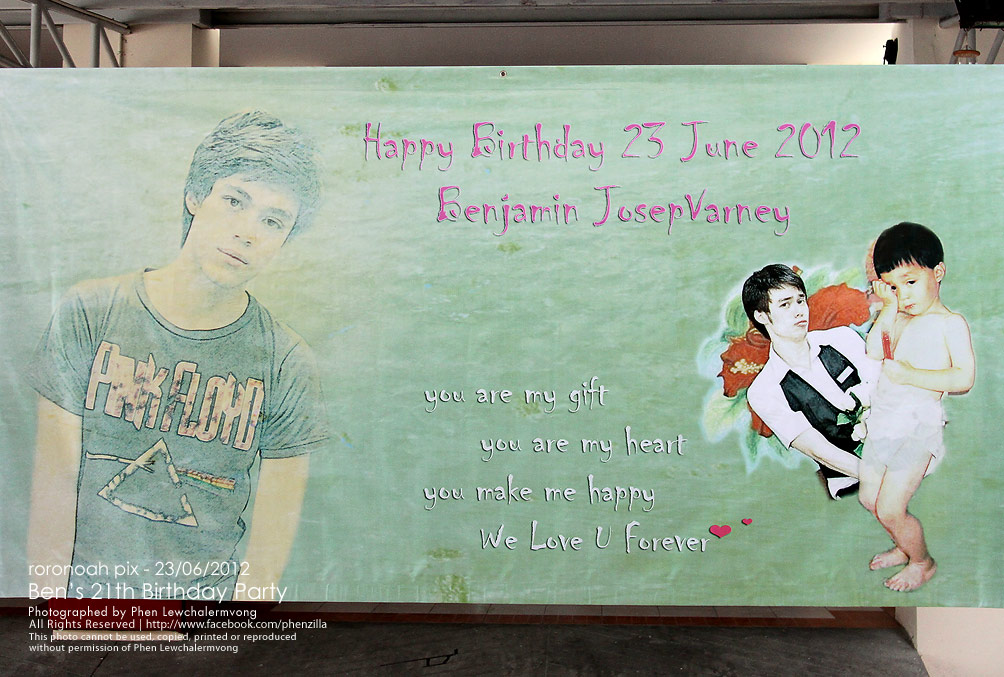 Happy Birthday 23 June 2012
Benjamin JosepVarney
PINK FLOYD
you are my gift
you are my heart
you make me happy
We Love U Forever
roronoah pix - 23/06/2012
Ben's 21th Birthday Party
Photographed by Phen Lewchalermvong
All Rights Reserved | http://www.facebook.com/phenzilla
This photo cannot be used, copied, printed or reproduced
without permission of Phen Lewchalermvong